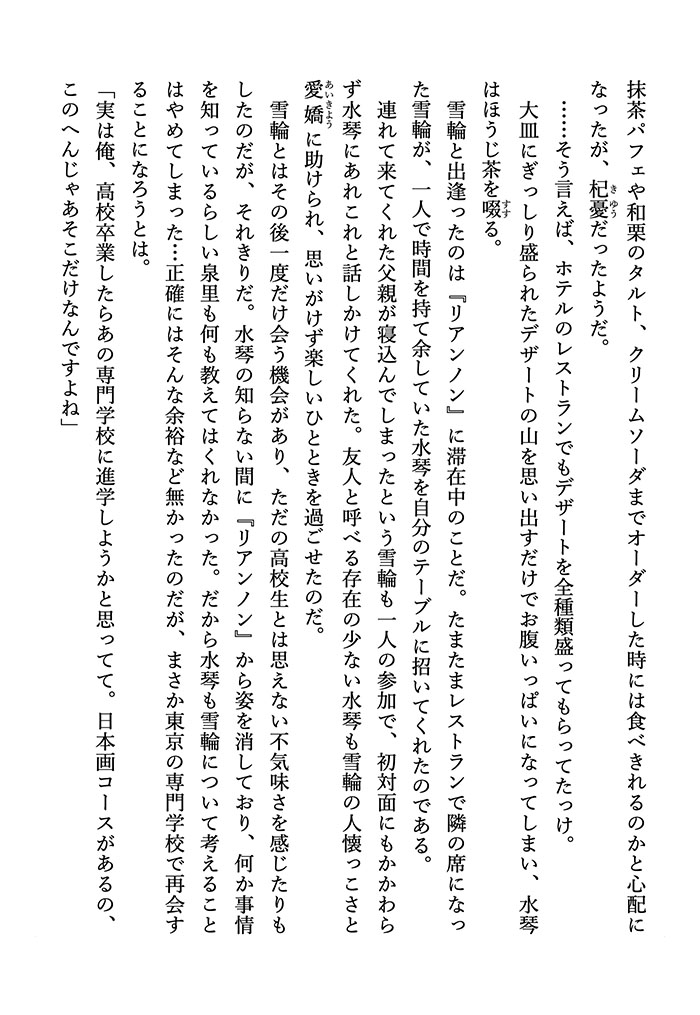 抹茶パフェや和栗のタルト、クリームソーダまでオーダーした時には食べきれるのかと心配に
なったが、杞憂だったようだ。
……そう言えば、ホテルのレストランでもデザートを全種類盛ってもらってたっけ。
大皿にぎっしり盛られたデザートの山を思い出すだけでお腹いっぱいになってしまい、水琴
はほうじ茶を啜る。
雪輪と出逢ったのは『リアンノン』に滞在中のことだ。たまたまレストランで隣の席になっ
た雪輪が、一人で時間を持て余していた水琴を自分のテーブルに招いてくれたのである。
連れて来てくれた父親が寝込んでしまったという雪輪も一人の参加で、初対面にもかかわら
ず水琴にあれこれと話しかけてくれた。友人と呼べる存在の少ない水琴も雪輪の人懐っこさと
愛嬌に助けられ、思いがけず楽しいひとときを過ごせたのだ。
雪輪とはその後一度だけ会う機会があり、ただの高校生とは思えない不気味さを感じたりも
したのだが、それきりだ。水琴の知らない間に『リアンノン』から姿を消しており、何か事情
を知っているらしい泉里も何も教えてはくれなかった。だから水琴も雪輪について考えること
はやめてしまった…正確にはそんな余裕など無かったのだが、まさか東京の専門学校で再会す
ることになろうとは。
「実は俺、高校卒業したらあの専門学校に進学しようかと思ってて。日本画コースがあるの、
このへんじゃあそこだけなんですよね」